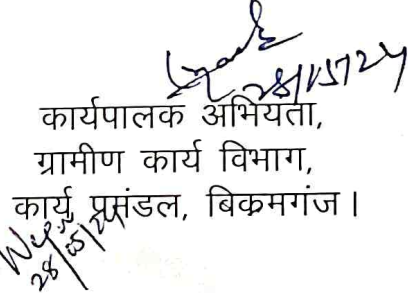 28/05/24
कार्यपालक अभियंता,
ग्रामीण कार्य विभाग,
कार्य प्रमंडल, बिक्रमगंज।
28/05/24